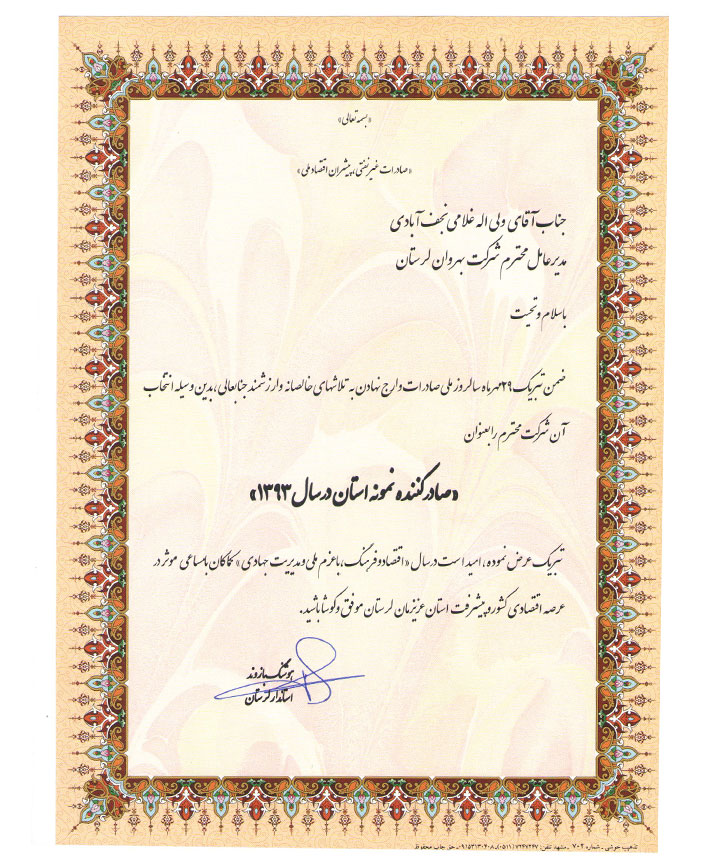 «بسمه تعالی»
«صادرات غیرنفتی، پیشران اقتصاد ملی»
جناب آقای ولی اله غلامی نجف آبادی
مدیرعامل محترم شرکت بهروان لرستان
باسلام و تحیت
ضمن تبریک ۲۹مهرماه سالروز ملی صادرات وارج نهادن به تلاشهای خالصانه وارزشمند جنابعالی، بدین وسیله انتخاب
آن شرکت محترم رابعنوان
«صادرکننده نمونه استان درسال ۱۳۹۳»
تبریک عرض نموده، امید است درسال «اقتصاد و فرهنگ، باعزم ملی و مدیریت جهادی» کماکان بامساعی موثر در
عرصه اقتصادی کشور و پیشرفت استان عزیزمان لرستان موفق و کوشا باشید.
هوشنگ بازوند
استاندار لرستان
تذهیب جوشی ـ شماره ۷۰۲ ـ مشهد تلفن: ۷۲۴۷۲۴۷ (۰۵۱۱)ـ۰۹۱۵۳۱۳۰۴۰۸ حق چاپ محفوظ